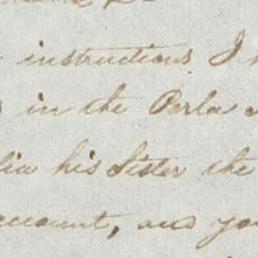 instructions I
in the Perla
his Sister the
account, and you